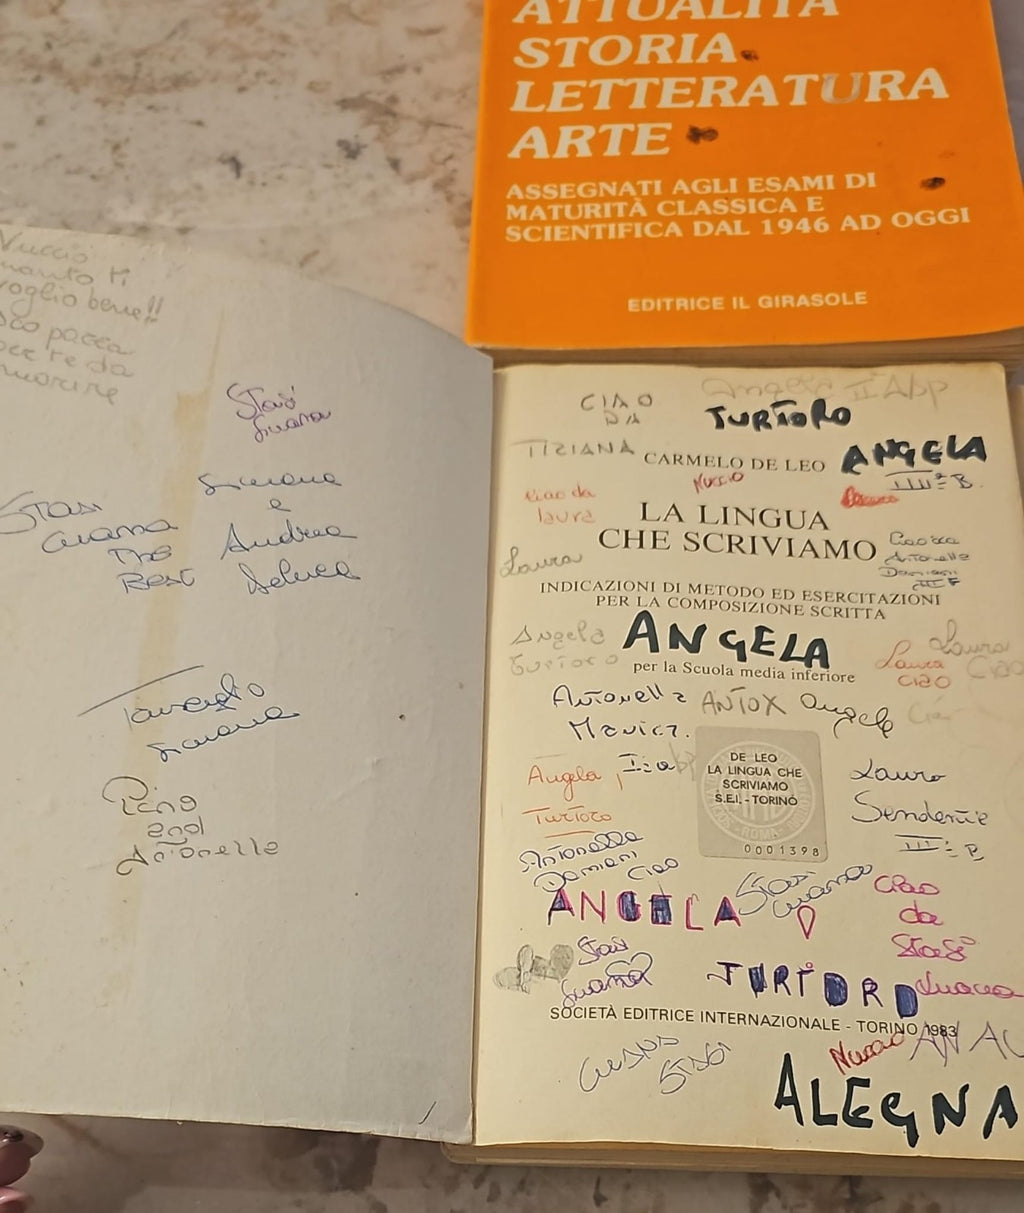 ATTUALITÀ
STORIA
LETTERATURA
ARTE
ASSEGNATI AGLI ESAMI DI
MATURITÀ CLASSICA E
SCIENTIFICA DAL 1946 AD OGGI
EDITRICE IL GIRASOLE
Nuccio
quanto ti
voglio bene!!
pazza
per te da
morire
Stasi
Luana
Stasi
Luana
The
Best
Simona
e
Andrea
Deluca
Simona
Pino
and
Antonella
CIAO
DA
TIZIANA
Angela II A bp
TURTORO
ANGELA
III B.
CARMELO DE LEO
Nuccio
Ciao da
laura
LA LINGUA
CHE SCRIVIAMO
Laura
Antonella
Damiani
III F
INDICAZIONI DI METODO ED ESERCITAZIONI
PER LA COMPOSIZIONE SCRITTA
Angela
Turtoro
ANGELA
per la Scuola media inferiore
Laura
ciao
Laura
Ciao
Antonella
ANTOX
Angela
Angela
Turtoro
DE LEO
LA LINGUA CHE
SCRIVIAMO
S.E.I. - TORINO
ROMA
0001398
Laura
III
Antonella
Damiani
Ciao
ANGELA
Stasi
Luana
Ciao
da
Stasi
Luana
Stasi
Luana
TURTORO
SOCIETÀ EDITRICE INTERNAZIONALE - TORINO 1983
Nuccio
LUANA
STASI
ALEGNA